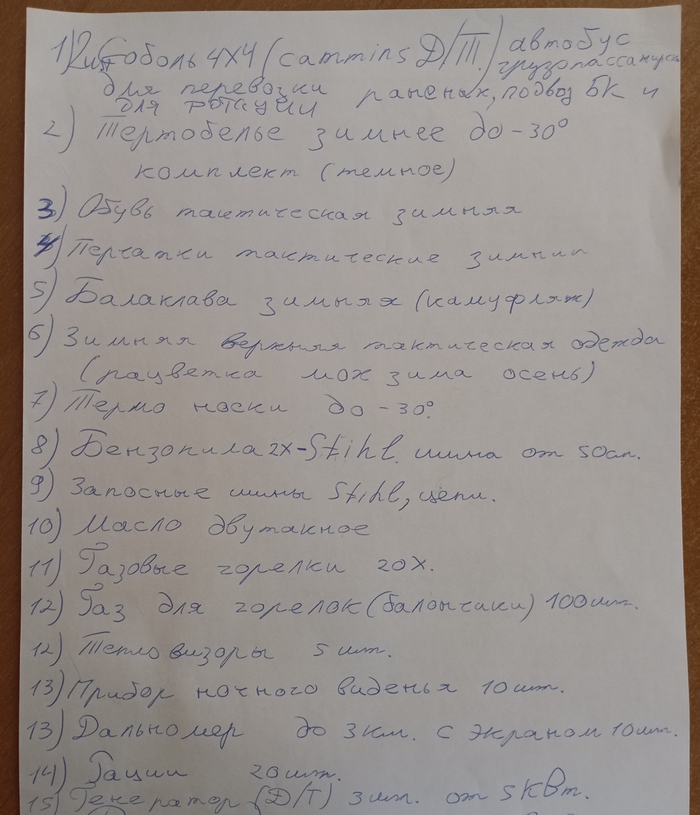 1) 2шт Соболь 4х4 (cammins Д/Т.) автобус
грузопассажирск
для перевозки раненых, подвоз БК и
для ротации
2) Термобелье зимнее до -30°
комплект (темное)
3) Обувь тактическая зимняя
4) Перчатки тактические зимнии
5) Балаклава зимняя (камуфляж)
6) Зимняя верхняя тактическая одежда
(рацветка мох зима осень)
7) Термо носки до -30°.
8) Бензопила 2х-Stihl. шина от 50сп.
9) Запосные шины Stihl, цепи.
10) Масло двутакное
11) Газовые горелки 20х.
12) Газ для горелок (балончики) 100шт.
12) Тепловизоры 5 шт.
13) Прибор ночного виденья 10шт.
13) Дальномер до 3км. с экраном 10шт.
14) Рации 20шт.
15) Генератор (Д/Т) 3шт. от 5кВт.